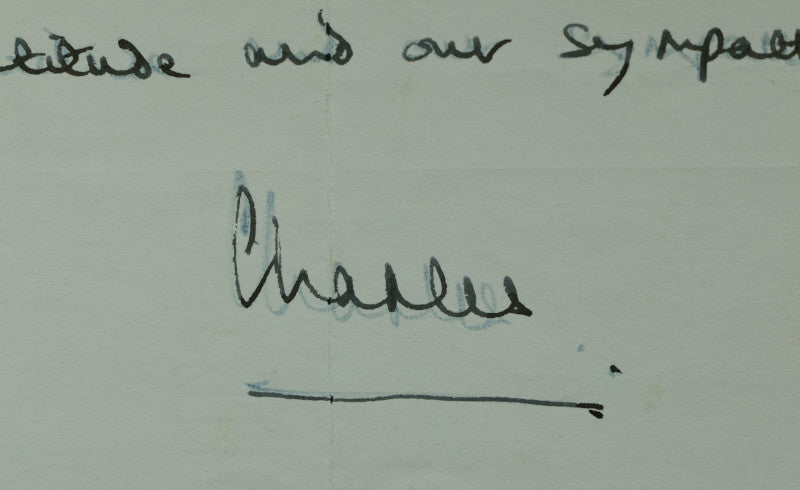 titude and our sympath
Charles